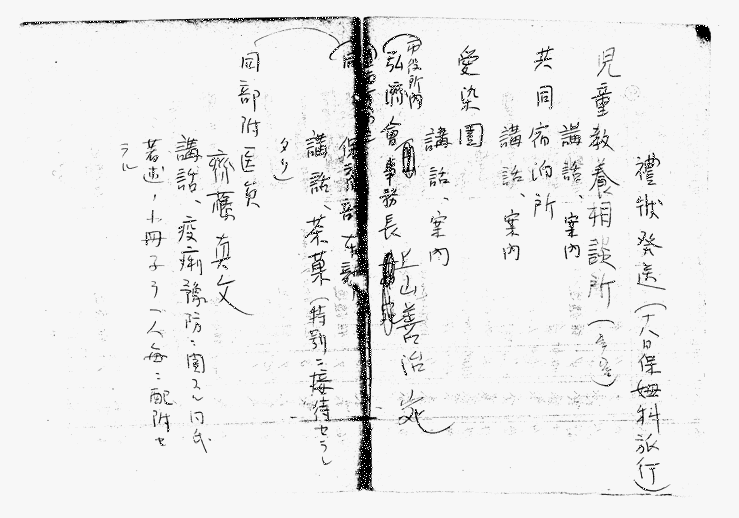 禮狀発送（十八日保姆科旅行）
児童教養相談所
講話、案内
共同宿泊所
講話、案内
愛染園
講話、案内
市役所内
弘濟會事務長 山善治宛
保育部
講話 茶菓（特別ニ接待セラレ
タリ）
同部附医員
齊藤真文
講話、疫痢豫防ニ関スル同氏
著述ノ小冊子ヲ一人毎ニ配附セ
ラル